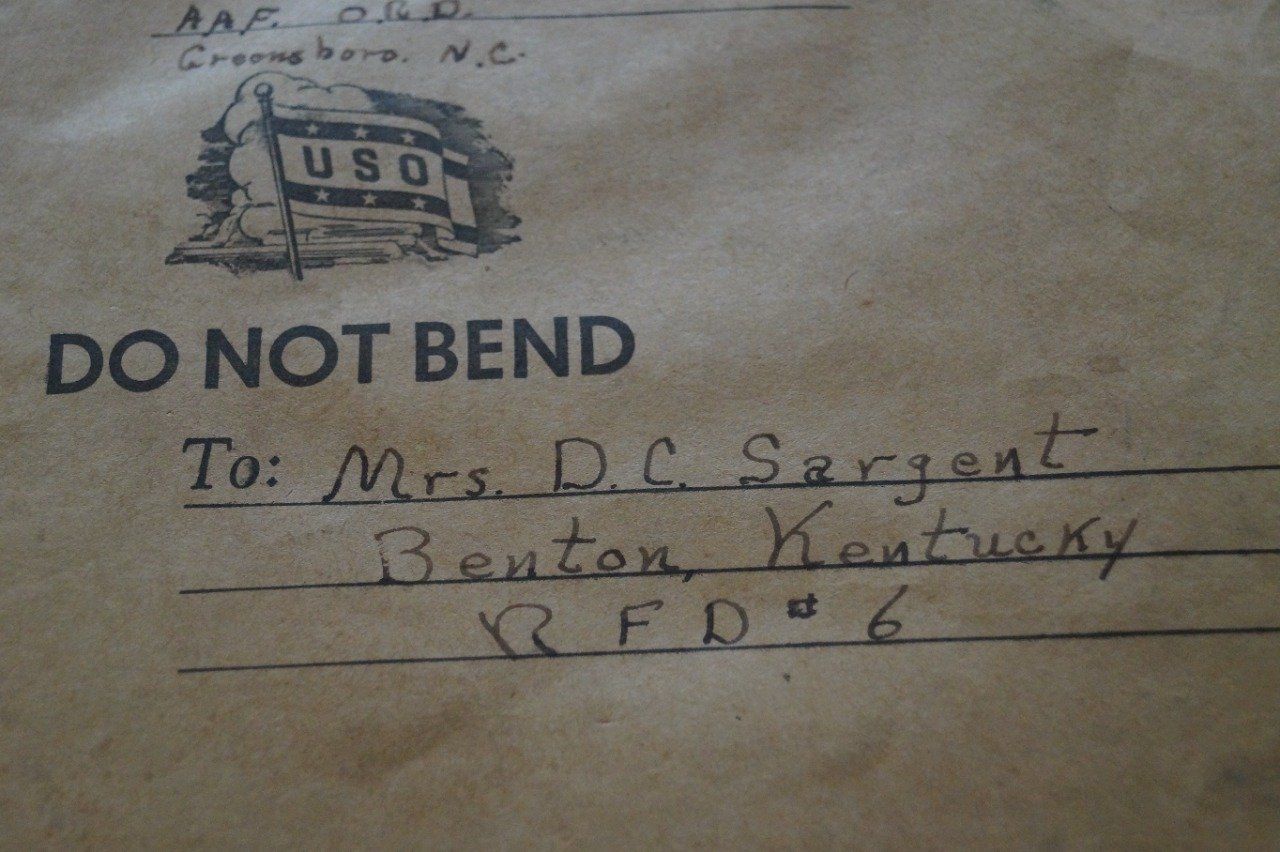 AAF. O.R.D.
Greensboro. N.C.
USO
DO NOT BEND
To: Mrs. D.C. Sargent
Benton, Kentucky
RFD # 6